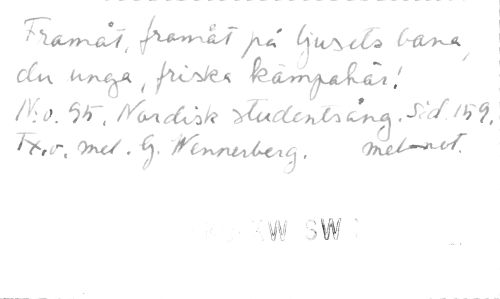 Framåt, framåt på ljusets bana,
du unga, friska kämpahär!
N:o. 95. Nordisk studentsång. Sid. 159.
Tx. o. mel. G. Wennerberg. mel-not.
SW